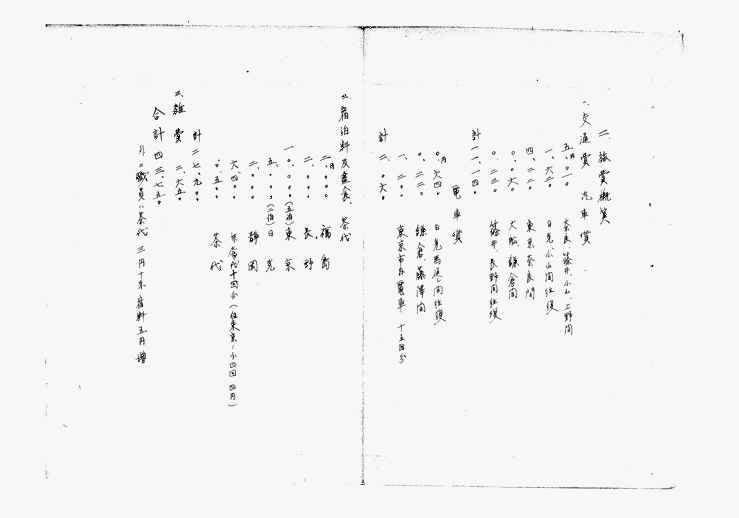 二、旅費概算
一、交通費 汽車賃
五、〇一〇 奈良、篠井、小山、上野間
一、六二〇 日光小山間往復
四、二二〇 東京奈良間
〇、〇六〇 大船鎌倉間
〇、二三〇 篠井、長野間往復
計 一一、一四〇
電車賃
〇、六四〇 日光馬返し間往復
〇、二二〇 鎌倉、藤澤間
一、二〇〇 東京市内電車 十五回分
計 二、〇六〇
二、宿泊料及畫食、茶代
二、〇〇〇 福島
二、〇〇〇 長野
一〇、〇〇〇(五泊)東京
五、〇〇〇(二泊)日光
二、〇〇〇 静岡
六、四〇〇 弁当代十四回分(但東京ノ分四回 四円)
〇、五〇〇 茶代
計 二七、九〇〇
三、雑費 二、六五〇
合計 四三、七五〇
職員ハ茶代 三円十銭 宿料五円 増